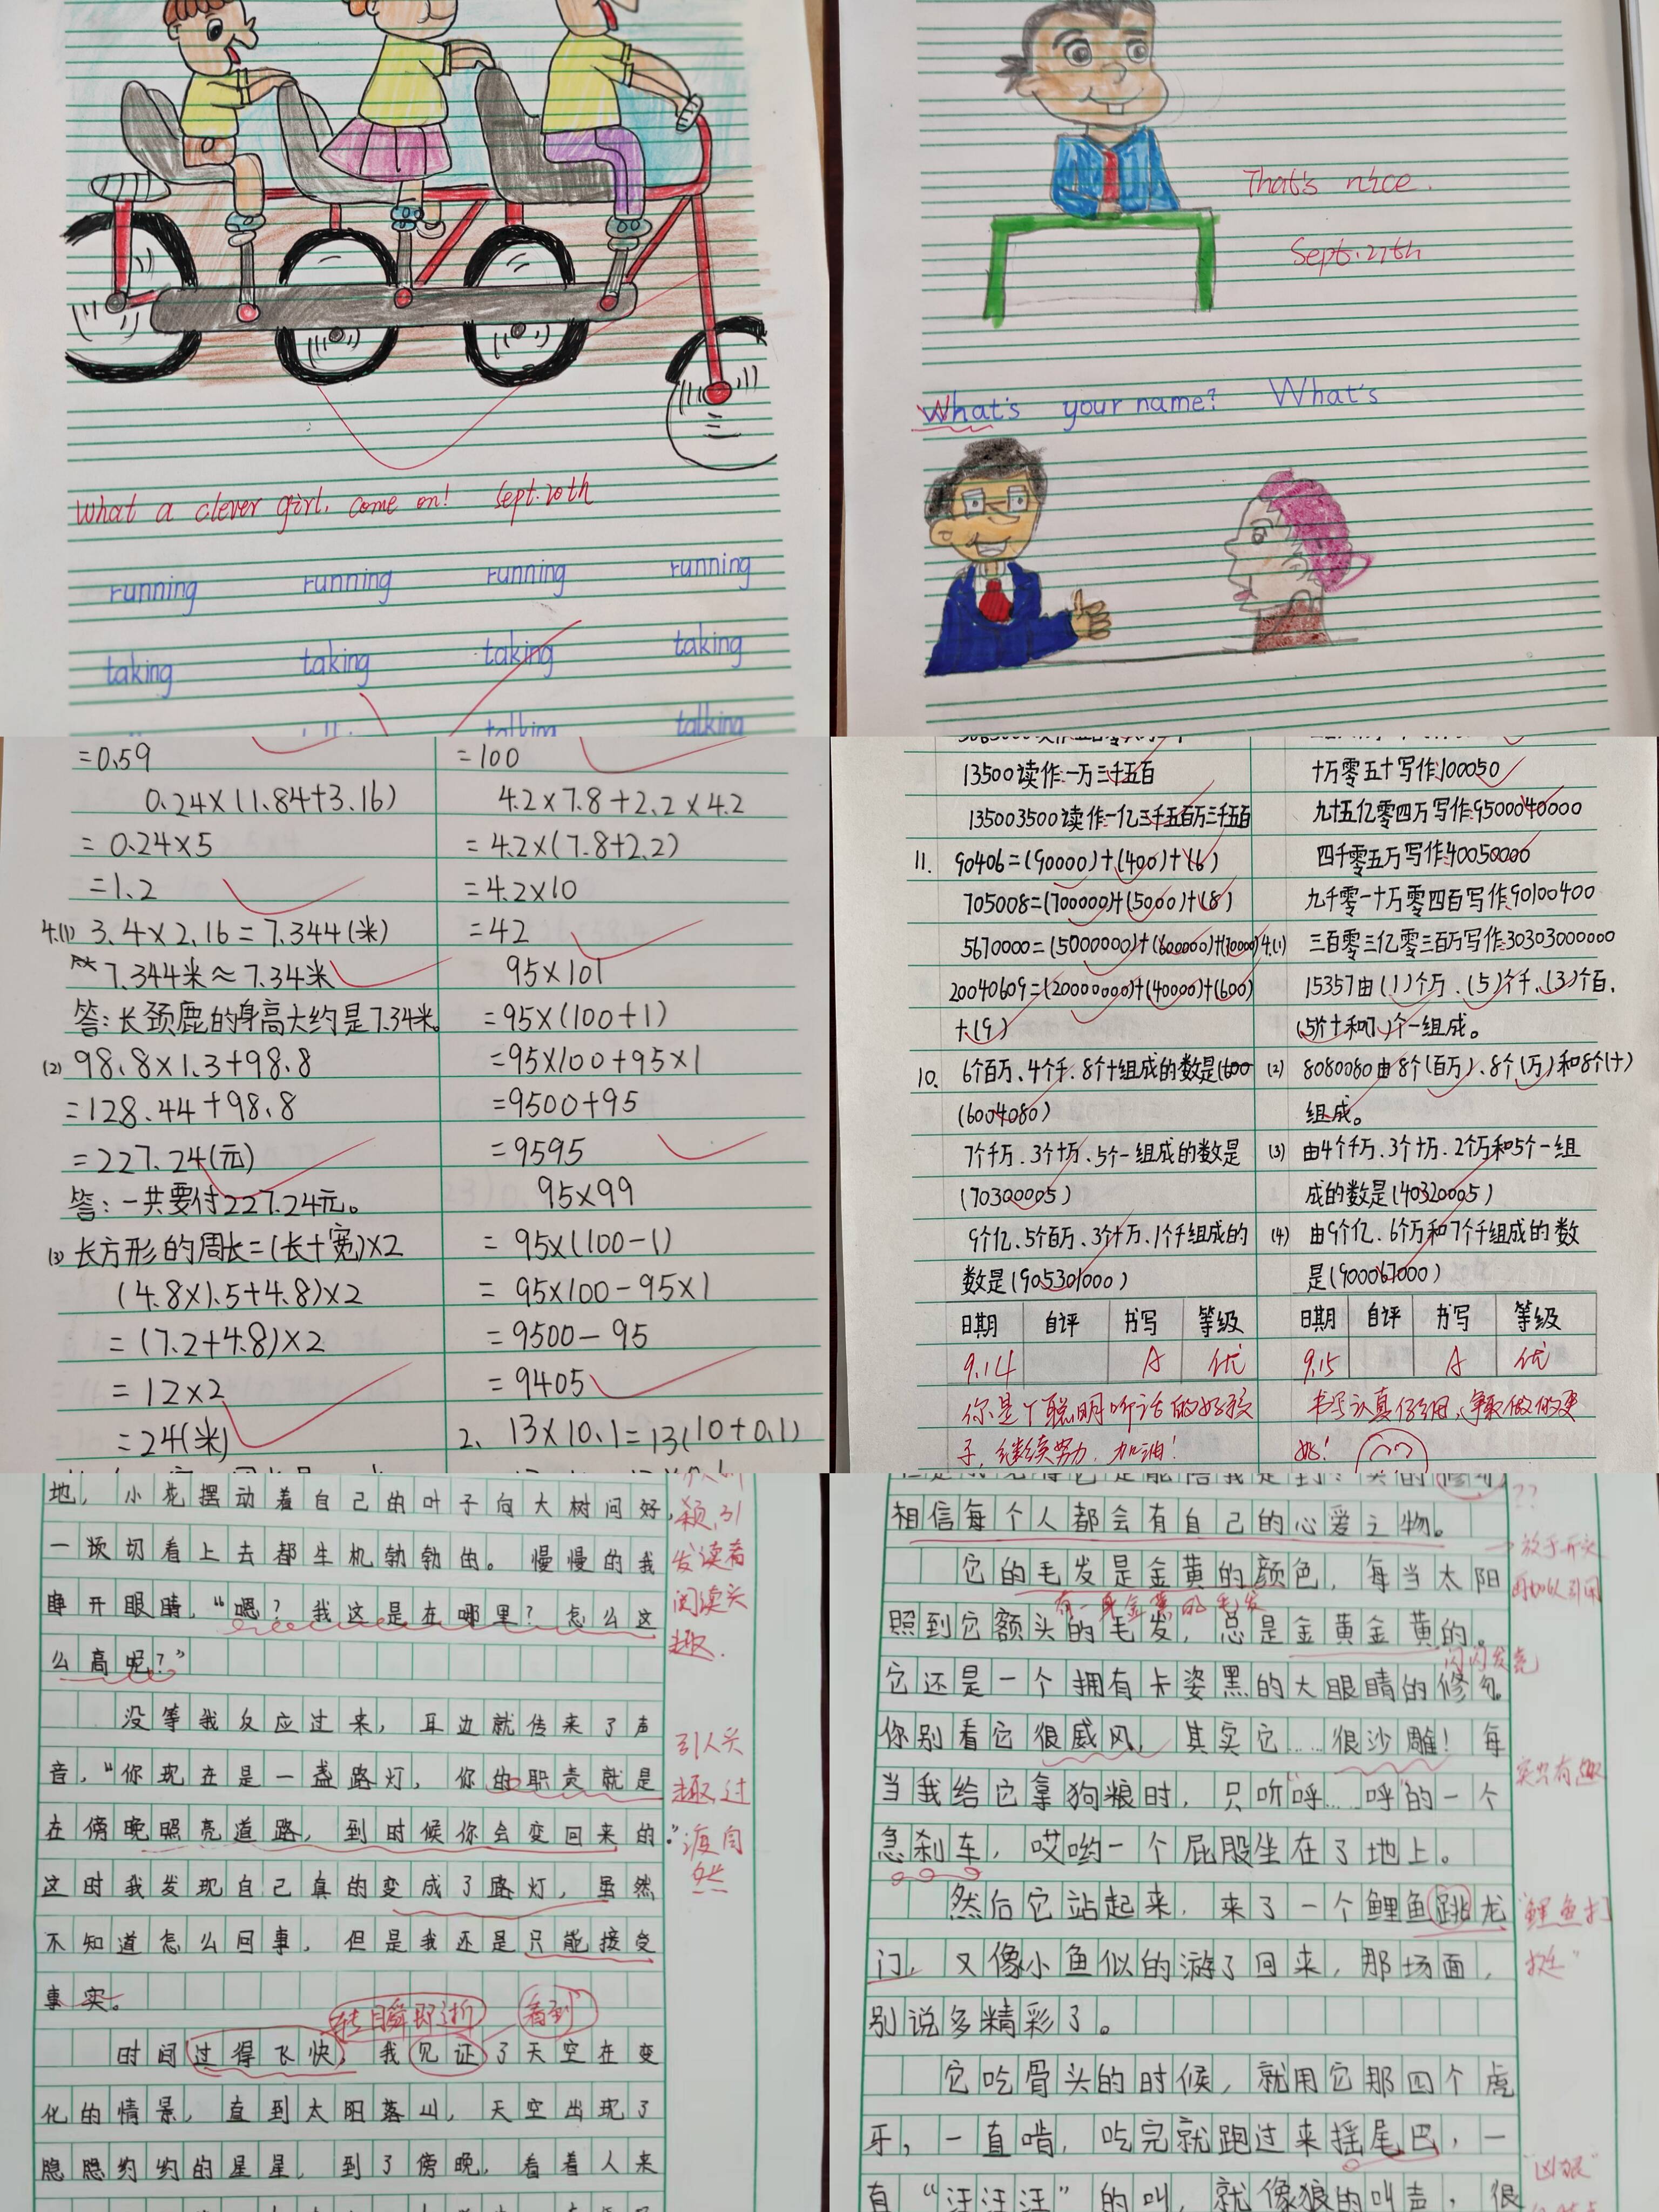 What a clever girl, come on! Sept.20th
running running running running
taking taking taking taking
talking talking
That's nice.
Sept.27th
What's your name? What's
=0.59
0.24×(1.84+3.16)
=0.24×5
=1.2
4.(1) 3.4×2.16=7.344(米)
7.344米≈7.34米
答:长颈鹿的身高大约是7.34米。
(2) 98.8×1.3+98.8
=128.44+98.8
=227.24(元)
答:一共要付227.24元。
(3) 长方形的周长=(长+宽)×2
(4.8×1.5+4.8)×2
=(7.2+4.8)×2
=12×2
=24(米)
=100
4.2×7.8+2.2×4.2
=4.2×(7.8+2.2)
=4.2×10
=42
95×101
=95×(100+1)
=95×100+95×1
=9500+95
=9595
95×99
=95×(100-1)
=95×100-95×1
=9500-95
=9405
2. 13×10.1=13(10+0.1)
13500读作:一万三千五百
135003500读作:一亿三千五百万三千五百
11. 90406=(90000)+(400)+(6)
705008=(700000)+(5000)+(8)
5670000=(5000000)+(600000)+(70000)
20040609=(20000000)+(40000)+(600)
+(9)
10. 6个百万、4个千、8个十组成的数是(600
(6004080)
7个千万、3个十万、5个一组成的数是
(70300005)
9个亿、5个百万、3个十万、1个千组成的
数是(905301000)
日期 自评 书写 等级
9.14 A 优
你是个聪明听话的好孩
子,继续努力,加油!
十万零五十写作:100050
九十五亿零四万写作:9500040000
四千零五万写作:40050000
九千零一十万零四百写作:90100400
三百零三亿零三百万写作:30303000000
4.(1) 15357由(1)个万、(5)个千、(3)个百、
(5)个十和(7)个一组成。
(2) 8080080由8个(百万)、8个(万)和8个(十)
组成。
(3) 由4个千万、3个十万、2个万和5个一组
成的数是(40320005)
(4) 由9个亿、6个万和7个千组成的数
是(900067000)
日期 自评 书写 等级
9.15 A 优
书写认真仔细,争取做的更
好!
地,小花摆动着自己的叶子向大树问好,
一切看上去都生机勃勃的。慢慢的我
睁开眼睛,“嗯?我这是在哪里?怎么这
么高呢?”
没等我反应过来,耳边就传来了声
音,“你现在是一盏路灯,你的职责就是
在傍晚照亮道路,到时候你会变回来的。”
这时我发现自己真的变成了路灯,虽然
不知道怎么回事,但是我还是只能接受
事实。
转瞬即逝 看到
时间过得飞快,我见证了天空在变
化的情景,直到太阳落山,天空出现了
隐隐约约的星星,到了傍晚,看着人来
颖,引
发读者
阅读兴
趣.
引人兴
趣,过
渡自
然
相信每个人都会有自己的心爱之物。
它的毛发是金黄的颜色,每当太阳
有一身金黄的毛发
照到它额头的毛发,总是金黄金黄的。
闪闪发亮
它还是一个拥有卡姿黑的大眼睛的修勾。
你别看它很威风,其实它……很沙雕!每
当我给它拿狗粮时,只听“呼……呼”的一个
急刹车,哎哟一个屁股坐在了地上。
然后它站起来,来了一个鲤鱼跳龙
门,又像小鱼似的游了回来,那场面,
别说多精彩了。
它吃骨头的时候,就用它那四个虎
牙,一直啃,吃完就跑过来摇尾巴,一
有“汪汪汪”的叫,就像狼的叫声,很
??
→放于开头
再加以引用
突出有趣
“鲤鱼打
挺”